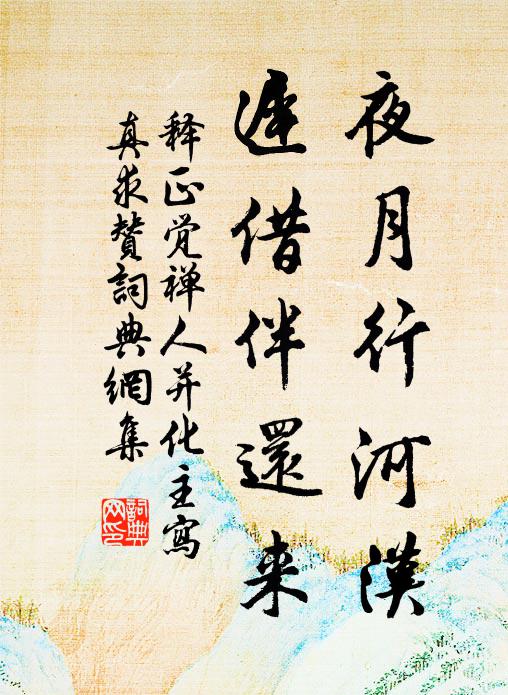 夜月行河漢
遲借伴還来
释正觉禅人并化主寫
真求賛詞典網集
詞典